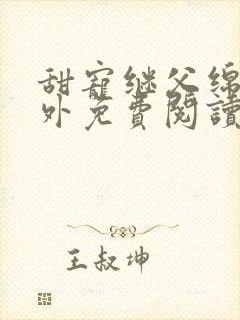 甜寵继父绵
外免費閱讀
王叔坤